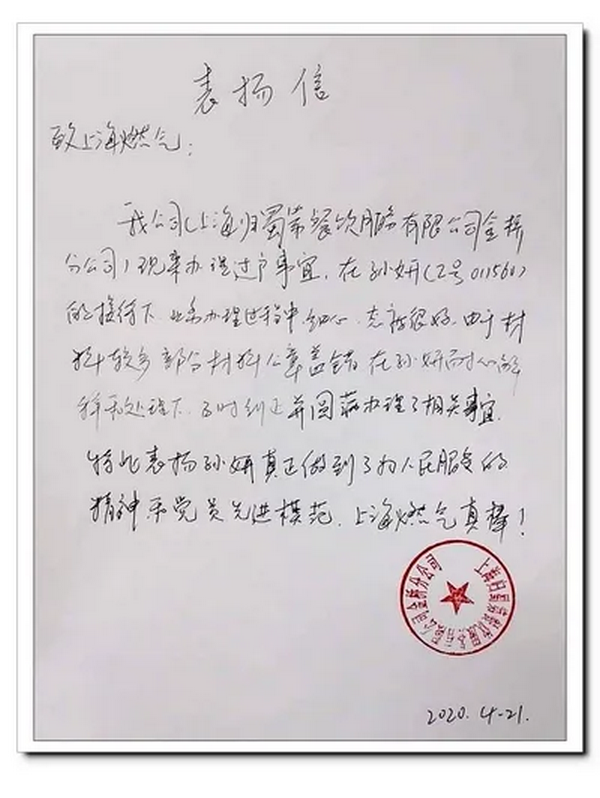 表扬信
致上海燃气:
我公司(上海归蜀常餐饮服务有限公司金桥
分公司)现来办理过户事宜,在孙妍(工号011560)
的接待下,业务办理过程中细心,态度很好,由于材
料较多部分材料公章盖错,在孙妍耐心解
释和处理下,及时纠正并圆满办理了相关事宜.
特此表扬孙妍真正做到了为人民服务的
精神和党员先进模范,上海燃气真棒!
2020.4-21.